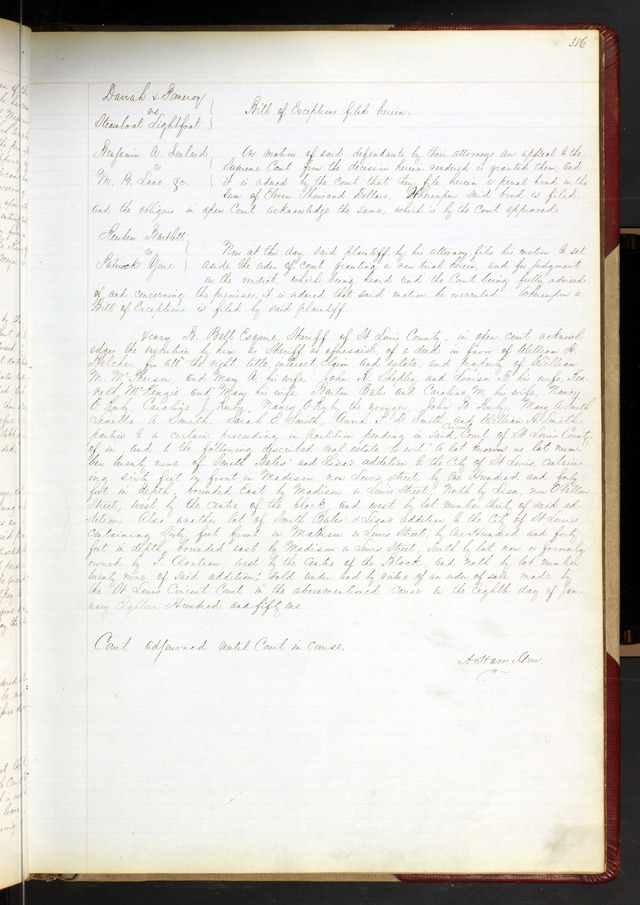 386
Darrah & Pomeroy
vs
Steamboat Lightfoot
Bill of Exceptions filed herein.
Benjamin A.
vs
Wm B. Lane &c.
On motion of said defendants by their attorneys an appeal to the
Supreme Court from the decision herein rendered is granted them, and
it is ordered by the court that they file herein a penal bond in the
sum of Thousand Dollars. Whereupon said bond is filed
and the obligors in open Court acknowledge the same, which is by the Court approved
Reuben Bartlett
vs
Patrick
Now at this day said plaintiff by his attorney files his motion to set
aside the order of court granting a new trial herein, and for judgment
on the verdict, which being heard and the Court being fully advised
of and concerning the premises, it is ordered that said motion be overruled. Whereupon a
Bill of Exceptions is filed by said plaintiff.
Henry B. Belt Esquire, Sheriff of St Louis County, in open court acknowl
edges the execution by him as Sheriff as aforesaid of a deed in favor of William H.
for all the right title interest, claim and estate, and property of William
M. McPherson, and Mary A. his wife, John R. Shepley and Louisa his wife, Ken
neth McKenzie and Mary his wife, Barton Bates and Caroline M. his wife, Nancy
Caroline J. Nancy the younger, John B. Mary A. Smith
A. Smith, Sarah E. Smith, Anna P. D. Smith and William H. Smith,
parties to a certain proceeding in partition pending in said Court of St Louis County
of in and to the following described real estate to wit "A lot known as lot num
ber twenty nine of Smith Bates' and Lisa's addition to the City of St Louis, contain-
ing sixty feet by front on Madison now Lewis street by one Hundred and forty
feet in depth bounded East by Madison or Lewis Street, North by Lisa, now O'Fallon
Street, west by the centre of the block and west by lot number thirty of said ad-
dition. Also another lot of Smith Bates' & Lisa's addition to the City of St Louis
containing sixty feet front on Madison or Lewis Street, by one Hundred and forty
feet in depth, bounded east by Madison or Lewis Street, South by lot now or formerly
owned by west by the centre of the Block, and North by lot number
twenty nine of said addition; sold under and by virtue of an order of sale made by
the St Louis Circuit Court in the abovementioned cause on the Eighth day of Jan-
uary Eighteen Hundred and fifty one.
Court adjourned until Court in course.
A Hamilton